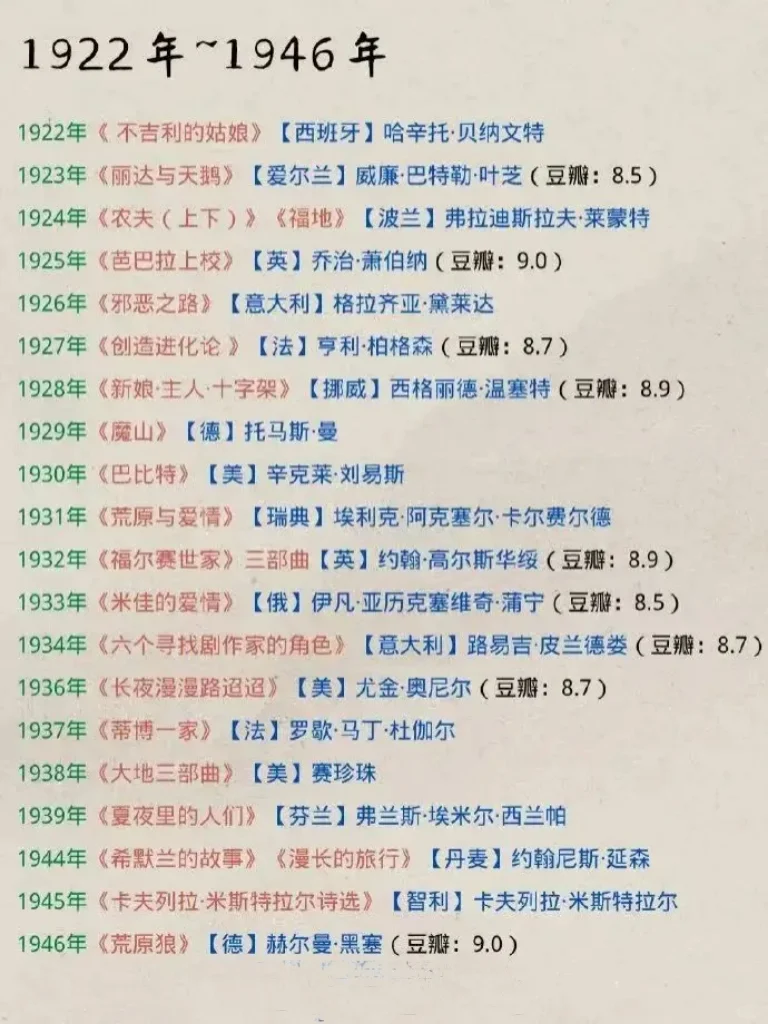 1922年~1946年
1922年《 不吉利的姑娘》【西班牙】哈辛托·贝纳文特
1923年《丽达与天鹅》【爱尔兰】威廉·巴特勒·叶芝(豆瓣:8.5)
1924年《农夫(上下)》《福地》【波兰】弗拉迪斯拉夫·莱蒙特
1925年《芭巴拉上校》【英】乔治·萧伯纳(豆瓣:9.0)
1926年《邪恶之路》【意大利】格拉齐亚·黛莱达
1927年《创造进化论 》【法】亨利·柏格森(豆瓣:8.7)
1928年《新娘·主人·十字架》【挪威】西格丽德·温塞特(豆瓣:8.9)
1929年《魔山》【德】托马斯·曼
1930年《巴比特》【美】辛克莱·刘易斯
1931年《荒原与爱情》【瑞典】埃利克·阿克塞尔·卡尔费尔德
1932年《福尔赛世家》三部曲【英】约翰·高尔斯华绥(豆瓣:8.9)
1933年《米佳的爱情》【俄】伊凡·亚历克塞维奇·蒲宁(豆瓣:8.5)
1934年《六个寻找剧作家的角色》【意大利】路易吉·皮兰德娄(豆瓣:8.7)
1936年《长夜漫漫路迢迢》【美】尤金·奥尼尔(豆瓣:8.7)
1937年《蒂博一家》【法】罗歇·马丁·杜伽尔
1938年《大地三部曲》【美】赛珍珠
1939年《夏夜里的人们》【芬兰】弗兰斯·埃米尔·西兰帕
1944年《希默兰的故事》《漫长的旅行》【丹麦】约翰尼斯·延森
1945年《卡夫列拉·米斯特拉尔诗选》【智利】卡夫列拉·米斯特拉尔
1946年《荒原狼》【德】赫尔曼·黑塞(豆瓣:9.0)